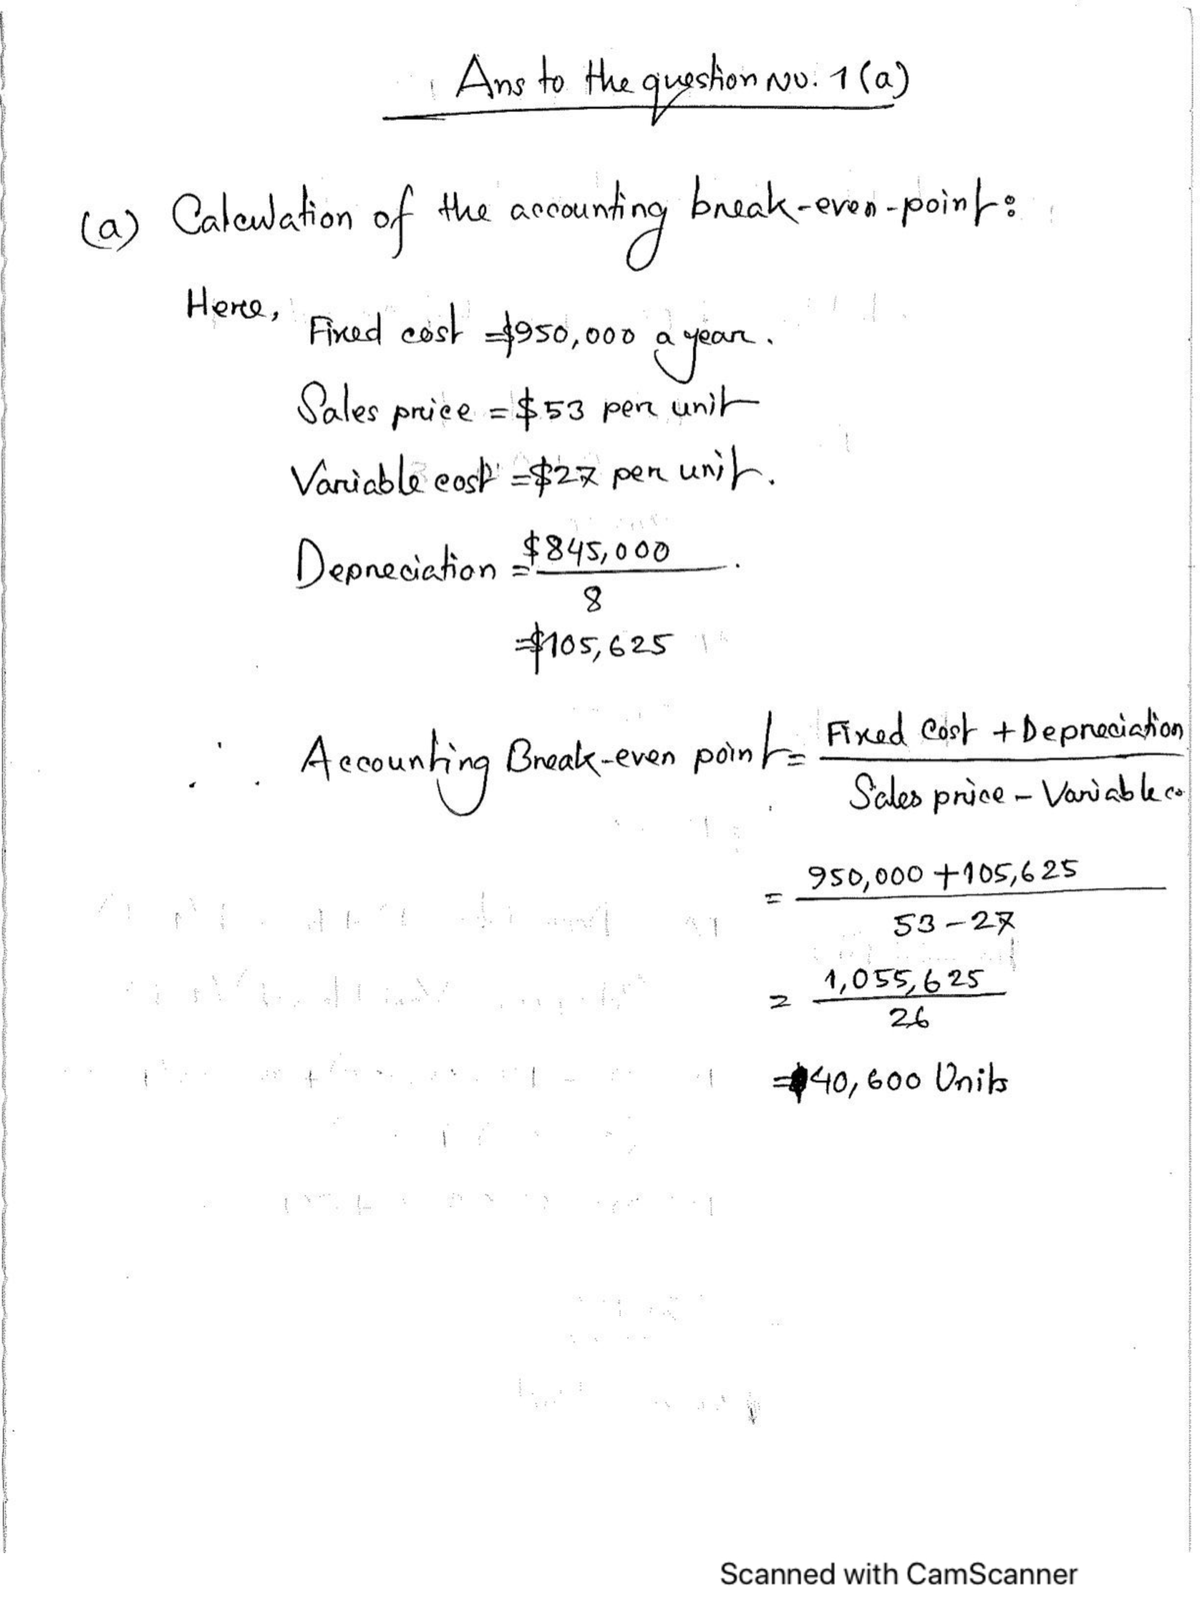 Ans to the question No. 1(a)
(a) Calculation of the accounting break-even-point:
Here,
Fixed cost =$950,000 a year.
Sales price = $53 per unit
Variable cost =$27 per unit.
Depreciation = $845,000
8
=$105,625
∴ Accounting Break-even point = Fixed Cost + Depreciation
Sales price - Variable co
= 950,000 + 105,625
53 - 27
= 1,055,625
26
= 40,600 Units
Scanned with CamScanner